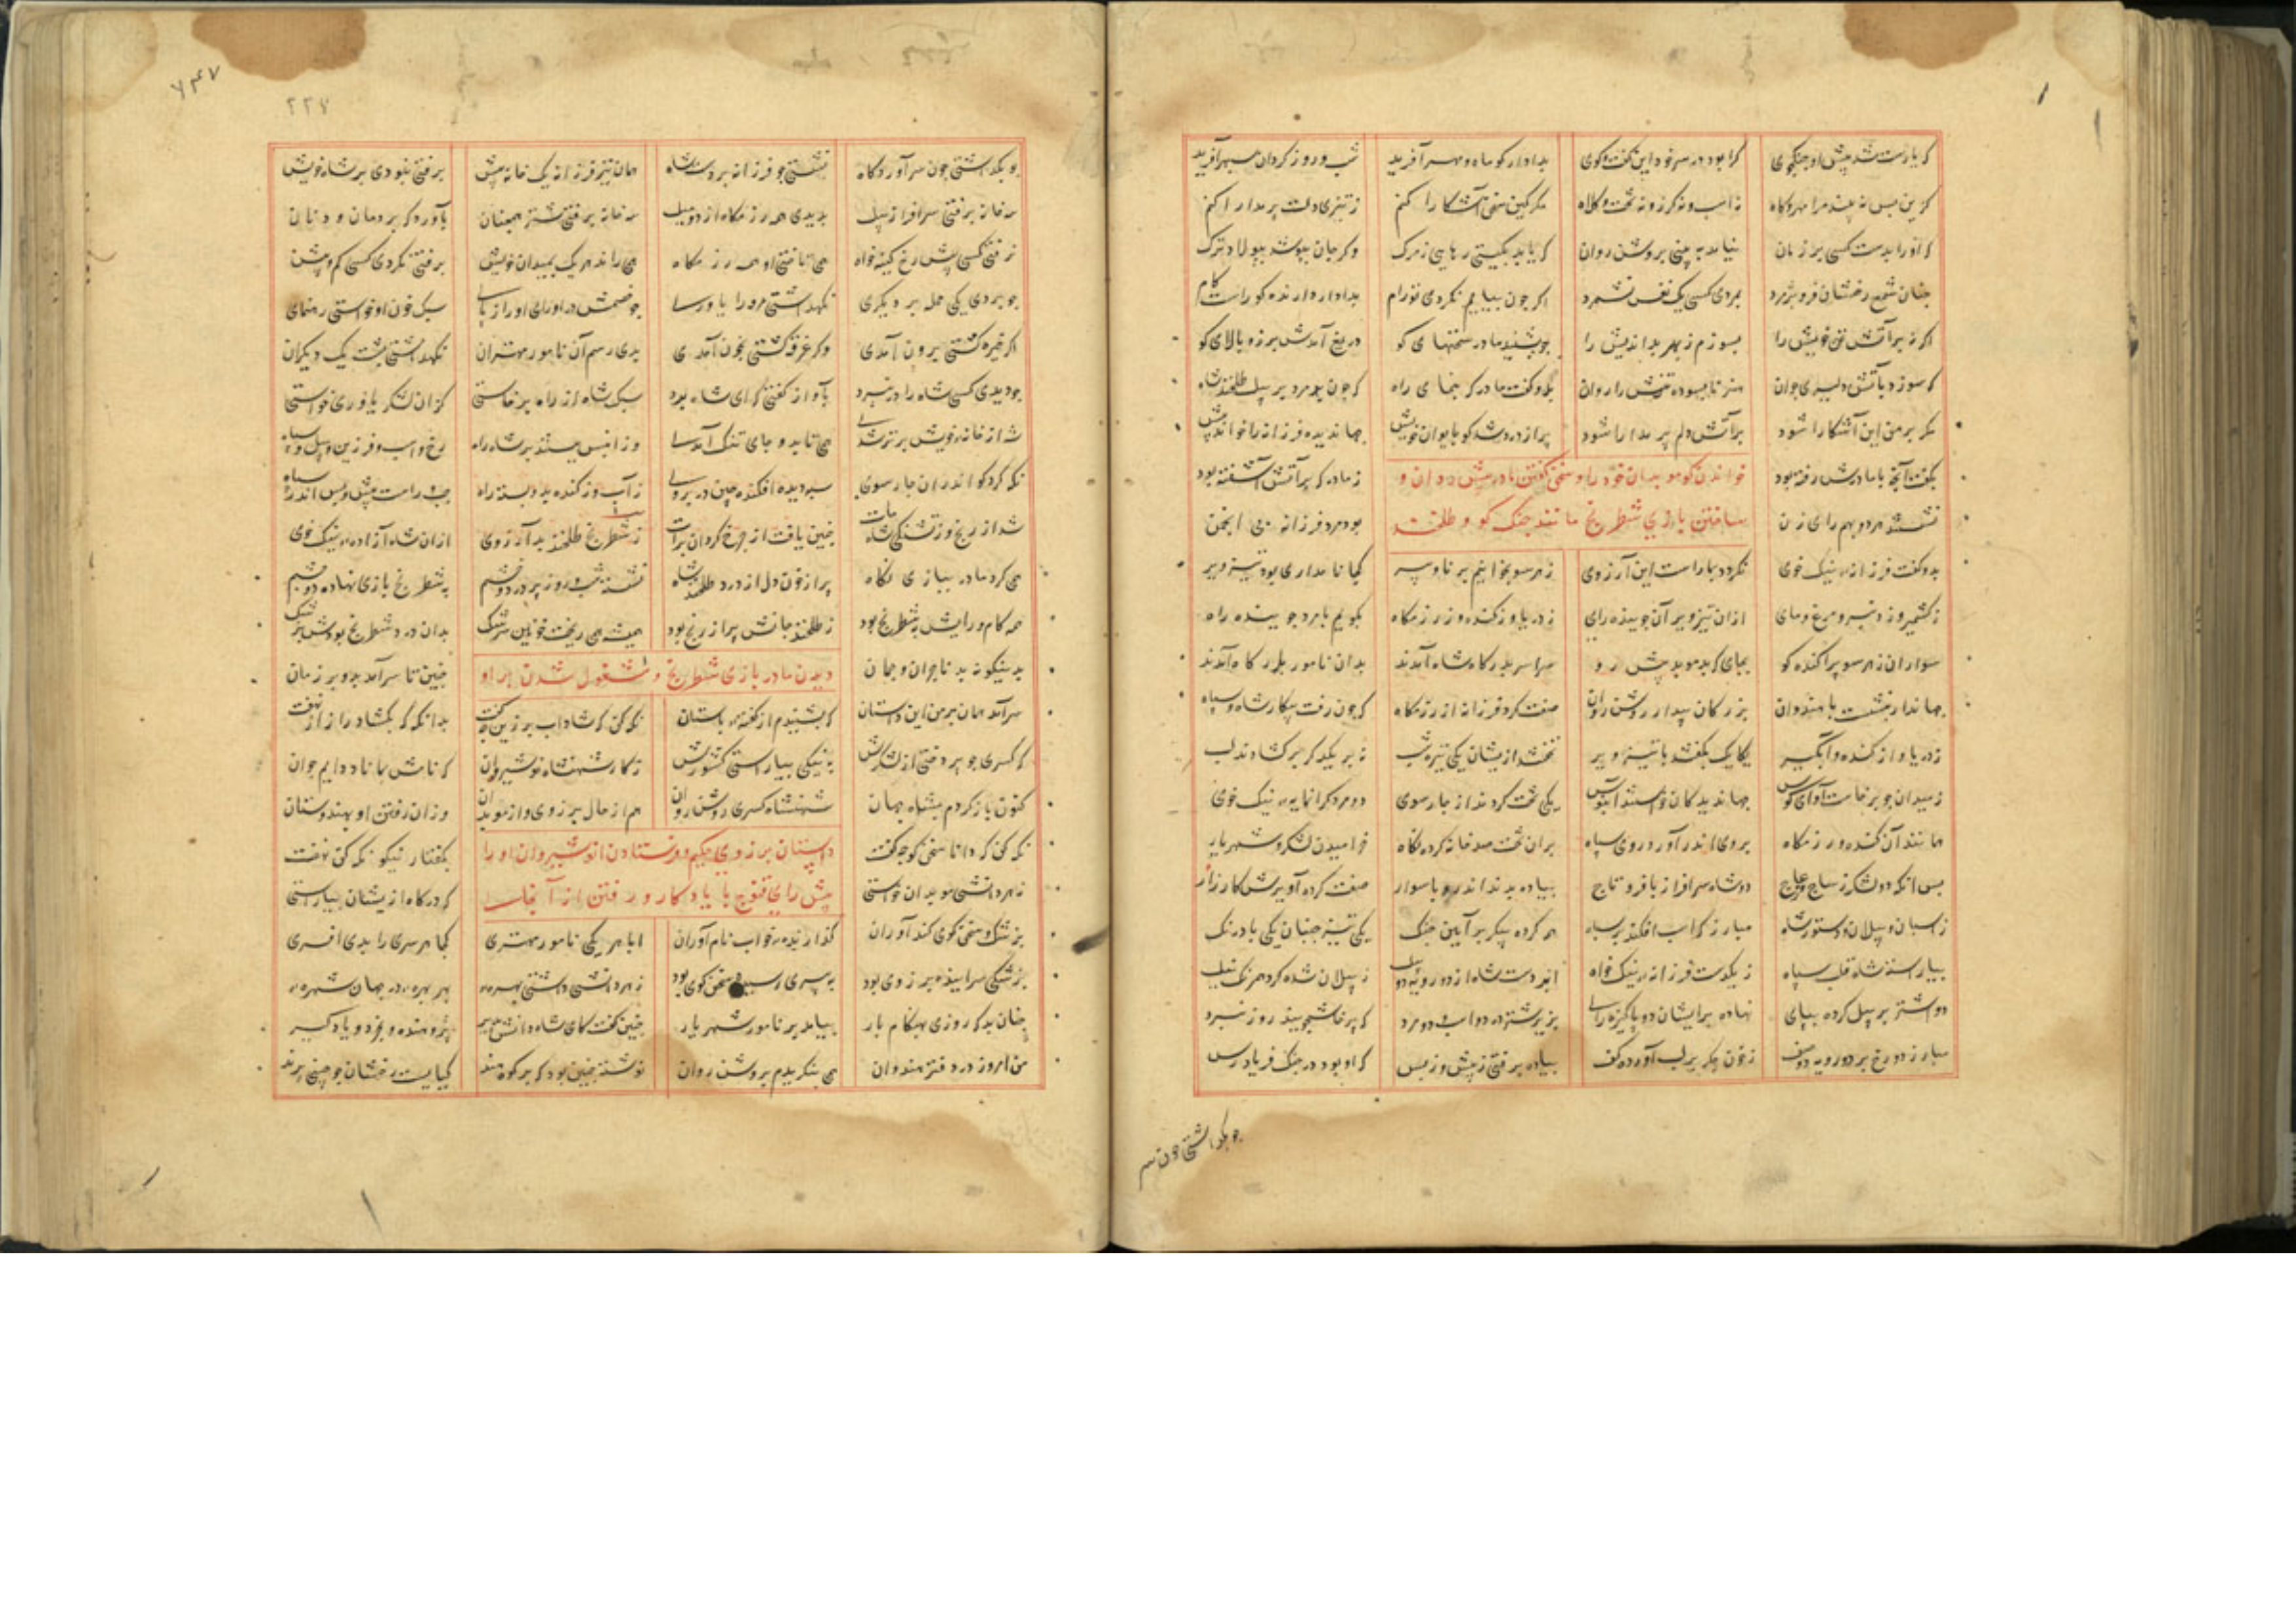 که یارست شد پیش او جنگجوی کرا بود در سر خود این گفت و گوی بدادار کو ماه و مهر آفرید شب و روز گردان سپهر آفرید
کزین پس نه بیند مرا مهر و گاه نه اسب و نه گرز و نه تخت و کلاه مگر کین سخن آشکارا کنم ز تیزی دلت پر مدارا کنم
که او را بدست کسی بد زمان نیامد به بینی بروشن روان که یابد بگیتی رهایی ز مرگ وگر جان بپوشد بپولاد ترگ
چنان شمع رخشان فرو پژمرد بمردی کسی یک نفس نشمرد اگر چون بیابم نکردی تو رام بدادار دارنده کو راست کام
اگر نه بر آتش تن خویش را بسوزم ز بهر بداندیش را چو بشنید مادر سخنهای گو دریغ آمدش برز و بالای گو
که سوزد بآتش دلیری جوان هنر نابسوده تنش را روان بدو گفت مادر که بنمای راه که چون بد مرد بر پیل طلخند شاه
مگر بر من این آشکارا شود بر آتش دلم پر مدارا شود پر از درد شد گو بایوان خویش جهاندیده فرزانه را خواند پیش
بگفت آنچه با مادرش رفته بود ز مادر که بر آتش آشفته بود
خواندن گو موبدان خود را و سخن گفتن مادر پیش دران و
نشستند هر دو بهم رای زن بود مرد فرزانه بی انجمن
ساختن بازی شطرنج مانند جنگ گو و طلخند
بدو گفت فرزانه نیک خوی نگردد بما راست این آرزوی ز هر سو بخوانیم برنا و پیر کجا نامداری بود تیزویر
ز کشمیر وز دنبر و مرغ و مای ازان تیزویر آن جوینده رای ز دریا و ز کنده وز رزمگاه بگویم با مرد جوینده راه
سواران ز هر سو پراکنده گو بجای که بد موبد پیش رو سراسر بدرگاه شاه آمدند بدان نامور بارگاه آمدند
جهاندار بنشست با هندوان بزرگان بیدار روشن روان صفت کرد فرزانه از رزمگاه که چون رفت پیکار شاه و سپاه
ز دریا و از کنده و آبگیر یکایک بگفتند با تیزویر نخفتند ازیشان یکی تیره شب نه بر یکدگر برگشادند لب
ز میدان چو برخاست آوای کوس جهاندیدگان خواستند آبنوس یکی تخت کردند از چار سوی دو مرد گرانمایه نیک خوی
مانند آن کنده و رزمگاه بروی اندر آورد روی سپاه بران تخت صد خانه کرده نگاه خرامیدن لشکر و شهریار
پس آنگه دو لشکر ز ساج و عاج دو شاه سرافراز با فر و تاج پیاده بدند اندرو با سوار صفت کرده آویزش کارزار
ز اسبان و پیلان و دستور شاه مبارز که اسب افکند بر سپاه همه کرده پیکر بر آیین جنگ یکی تیز جنبان یکی با درنگ
بیاراسته شاه قلب سپاه ز یکدست فرزانه نیک خواه ابر دست شاه از دو رویه دو پیل ز پیلان شده گرد همرنگ نیل
دو اشتر بر پیل کرده بپای نهاده برایشان دو پاکیزه رای بزیر شتر در دو اسب و دو مرد که پرخاش جویند روز نبرد
مبارز دو رخ بر دو رویه دو صف ز خون جگر بر لب آورده کف پیاده برفتی ز پیش و ز پس که او بود در جنگ فریادرس
چو بگذاشتی چون سر
۷۴۷
۲۲۷
چو بگذاشتی چون سر آوردگاه نشستی چو فرزانه بر دست شاه همان نیز فرزانه یک خانه پیش برفتی نبودی بر شاه خویش
سه خانه برفتی سرافراز پیل بدیدی همه رزمگاه از دو میل سه خانه برفتی شتر همچنان بآورد گه بر دمان و دنان
نرفتی کسی پیش رخ کینه خواه همی تاختی او همه رزمگاه همی راند هر یک بمیدان خویش برفتن نکردی کسی کم و بیش
چو بردی یکی حمله بر دیگری نگهداشتی مرو را یاوری
اگر خیره گشتی برون آمدی وگر غرقه گشتی بخون آمدی بدی رسم آن نامور مهتران نگهداشتی پشت یک دیگران
چو دیدی کسی شاه را در نبرد بآواز گفتی که ای شاه برد سبک شاه از راه برخاستی کزان لشکر یاوری خواستی
شه از خانه خویش برتر شدی همی تابدو جای تنگ آمدی وز آنپس ببستند بر شاه راه رخ و اسب و فرزین و پیل و سپاه
نگه کرد گو اندران چارسوی سپه دید افکنده چین در بروی ز آب و ز کنده بدو بسته راه چپ و راست پیش و پس اندر سپاه
شد از رنج وز تشنگی شاه مات چنین یافت از چرخ گردان برات ز شطرنج طلخند بد آرزوی ازان شاه آزاده نیک خوی
همی کرد مادر ببازی نگاه پر از خون دل از درد طلخند شاه نشسته شب و روز پر درد و خشم به شطرنج بازی نهاده دو چشم
همه کام و رایش به شطرنج بود ز طلخند جانش پر از رنج بود همیشه همی ریخت خونین سرشک بدان درد شطرنج بودش پزشک
بدینگونه بد ناچران و چمان چنین تا سر آمد بدو بر زمان
دیدن مادر بازی شطرنج و مشغول شدن بر او
سرآمد همان بر من این داستان که بشنیدم از گفته باستان نگه کن که شاداب برزین چه گفت بدانگه که بگشاد راز از نهفت
که کسری چو پردختی از لشکرش به نیکی بیاراستی کشورش ز کار شهنشاه نوشیروان که نامش بماناد دایم جوان
کنون باز گردم بشاه جهان شهنشاه کسری روشن روان هم از حال برزوی و از موبدان وزان رفتن او بهندوستان
نگه کن که دانا سخن گو چه گفت بگفتار نیکو نگه کن نهفت
داستان برزوی حکیم و فرستادن انوشیروان او را
ز هر دانشی موبدان خواستی که درگاه ازیشان بیاراستی
پیش رای قنوج با یادگار و رفتن از آنجا
پزشک و سخن گوی کند آوران گذارنده خواب نام آوران ابا هر یکی نامور مهتری کجا هر سری را بدی افسری
پزشکی سراینده برزوی بود به پیری رسیده سخن گوی بود ز هر دانشی داشتی بهره بهر بهره در جهان شهره
چنان بد که روزی بهنگام بار بیامد بر نامور شهریار چنین گفت کای شاه دانش پذیر پژوهنده و بخرد و یادگیر
من امروز در دفتر هندوان همی بنگریدم بروشن روان نوشته چنین بود که بر کوه هند گیاییست رخشان چو چینی پرند